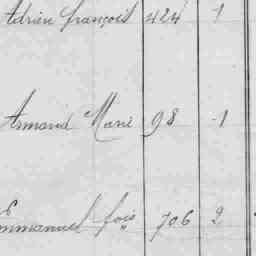 Adrien françois 424 1
Armand Marie 98 1
mmanuel fois 706 2